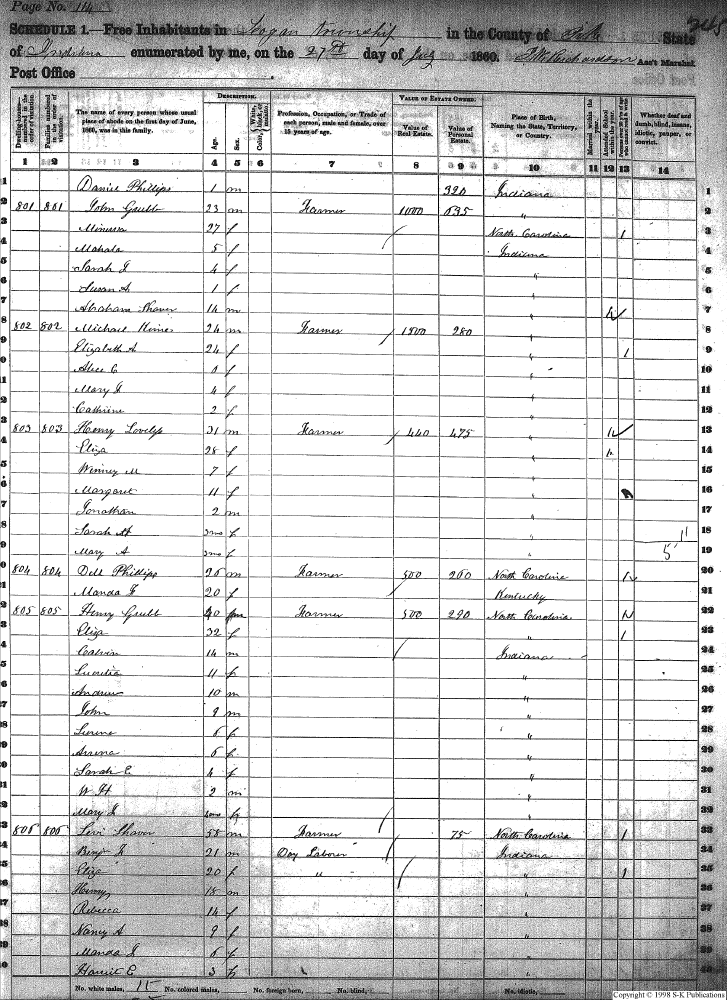 Page No. 114
245
SCHEDULE 1.—Free Inhabitants in Logan Township in the County of Pike State
of Indiana enumerated by me, on the 27th day of July 1860. Ass't Marshal.
Post Office
Dwelling-houses numbered in the order of visitation. Families numbered in the order of visitation. The name of every person whose usual place of abode on the first day of June, 1860, was in this family. DESCRIPTION. Age. Sex. Color, White, black, or mulatto. Profession, Occupation, or Trade of each person, male and female, over 15 years of age. VALUE OF ESTATE OWNED. Value of Real Estate. Value of Personal Estate. Place of Birth, Naming the State, Territory, or Country. Married within the year. Attended School within the year. Whether deaf and dumb, blind, insane, idiotic, pauper, or convict.
1 2 3 4 5 6 7 8 9 10 11 12 13 14
1 Daniel Phillips 1 m 320 Indiana 1
2 801 801 John Grubb 23 m Farmer 1000 635 " 2
3 27 f North Carolina 1 3
4 Mahala 5 f Indiana 4
5 Sarah J 4 f " 5
6 Susan A 1 f " 6
7 Abraham Shaver 14 m " 7
8 802 802 Michael Hines 24 m Farmer 1800 280 " 8
9 Elizabeth A 24 f " 1 9
10 Alice C f " 10
11 Mary J 4 f " 11
12 Cathrine 2 f " 12
13 803 803 Henry Lovelys 31 m Farmer 440 475 " 13
14 Eliza 28 f " 14
15 Winney M 7 f " 15
16 Margaret 11 f " 16
17 Jonathan 2 m " 17
18 Sarah 3mo f " 11 18
19 Mary A 3mo f " 5 19
20 804 804 Dell Phillips 26 m Farmer 500 200 North Carolina 20
21 Manda F 20 f Kentucky 21
22 805 805 Henry Grubb 40 m Farmer 500 290 North Carolina 22
23 Eliza 32 f " 1 23
24 Calvin 14 m Indiana 24
25 Lucretia 11 f " 25
26 Andrew 10 m " 26
27 John 9 m " 27
28 6 f " 28
29 6 f " 29
30 Sarah E 4 f " 30
31 W H 2 m " 31
32 Mary J f " 32
33 806 806 Levi Shaver 58 m Farmer 75 North Carolina 1 33
34 Benj F 21 m Day Laborer Indiana 34
35 Eliza 20 f " " 1 35
36 Henry 18 m " 36
37 Rebecca 14 f " 37
38 Nancy A 9 f " 38
39 Manda J 6 f " 39
40 Harriet E 3 f " 40
No. white males, 15 No. colored males, No. foreign born, No. blind, No. idiotic,
Copyright © 1998 S-K Publications